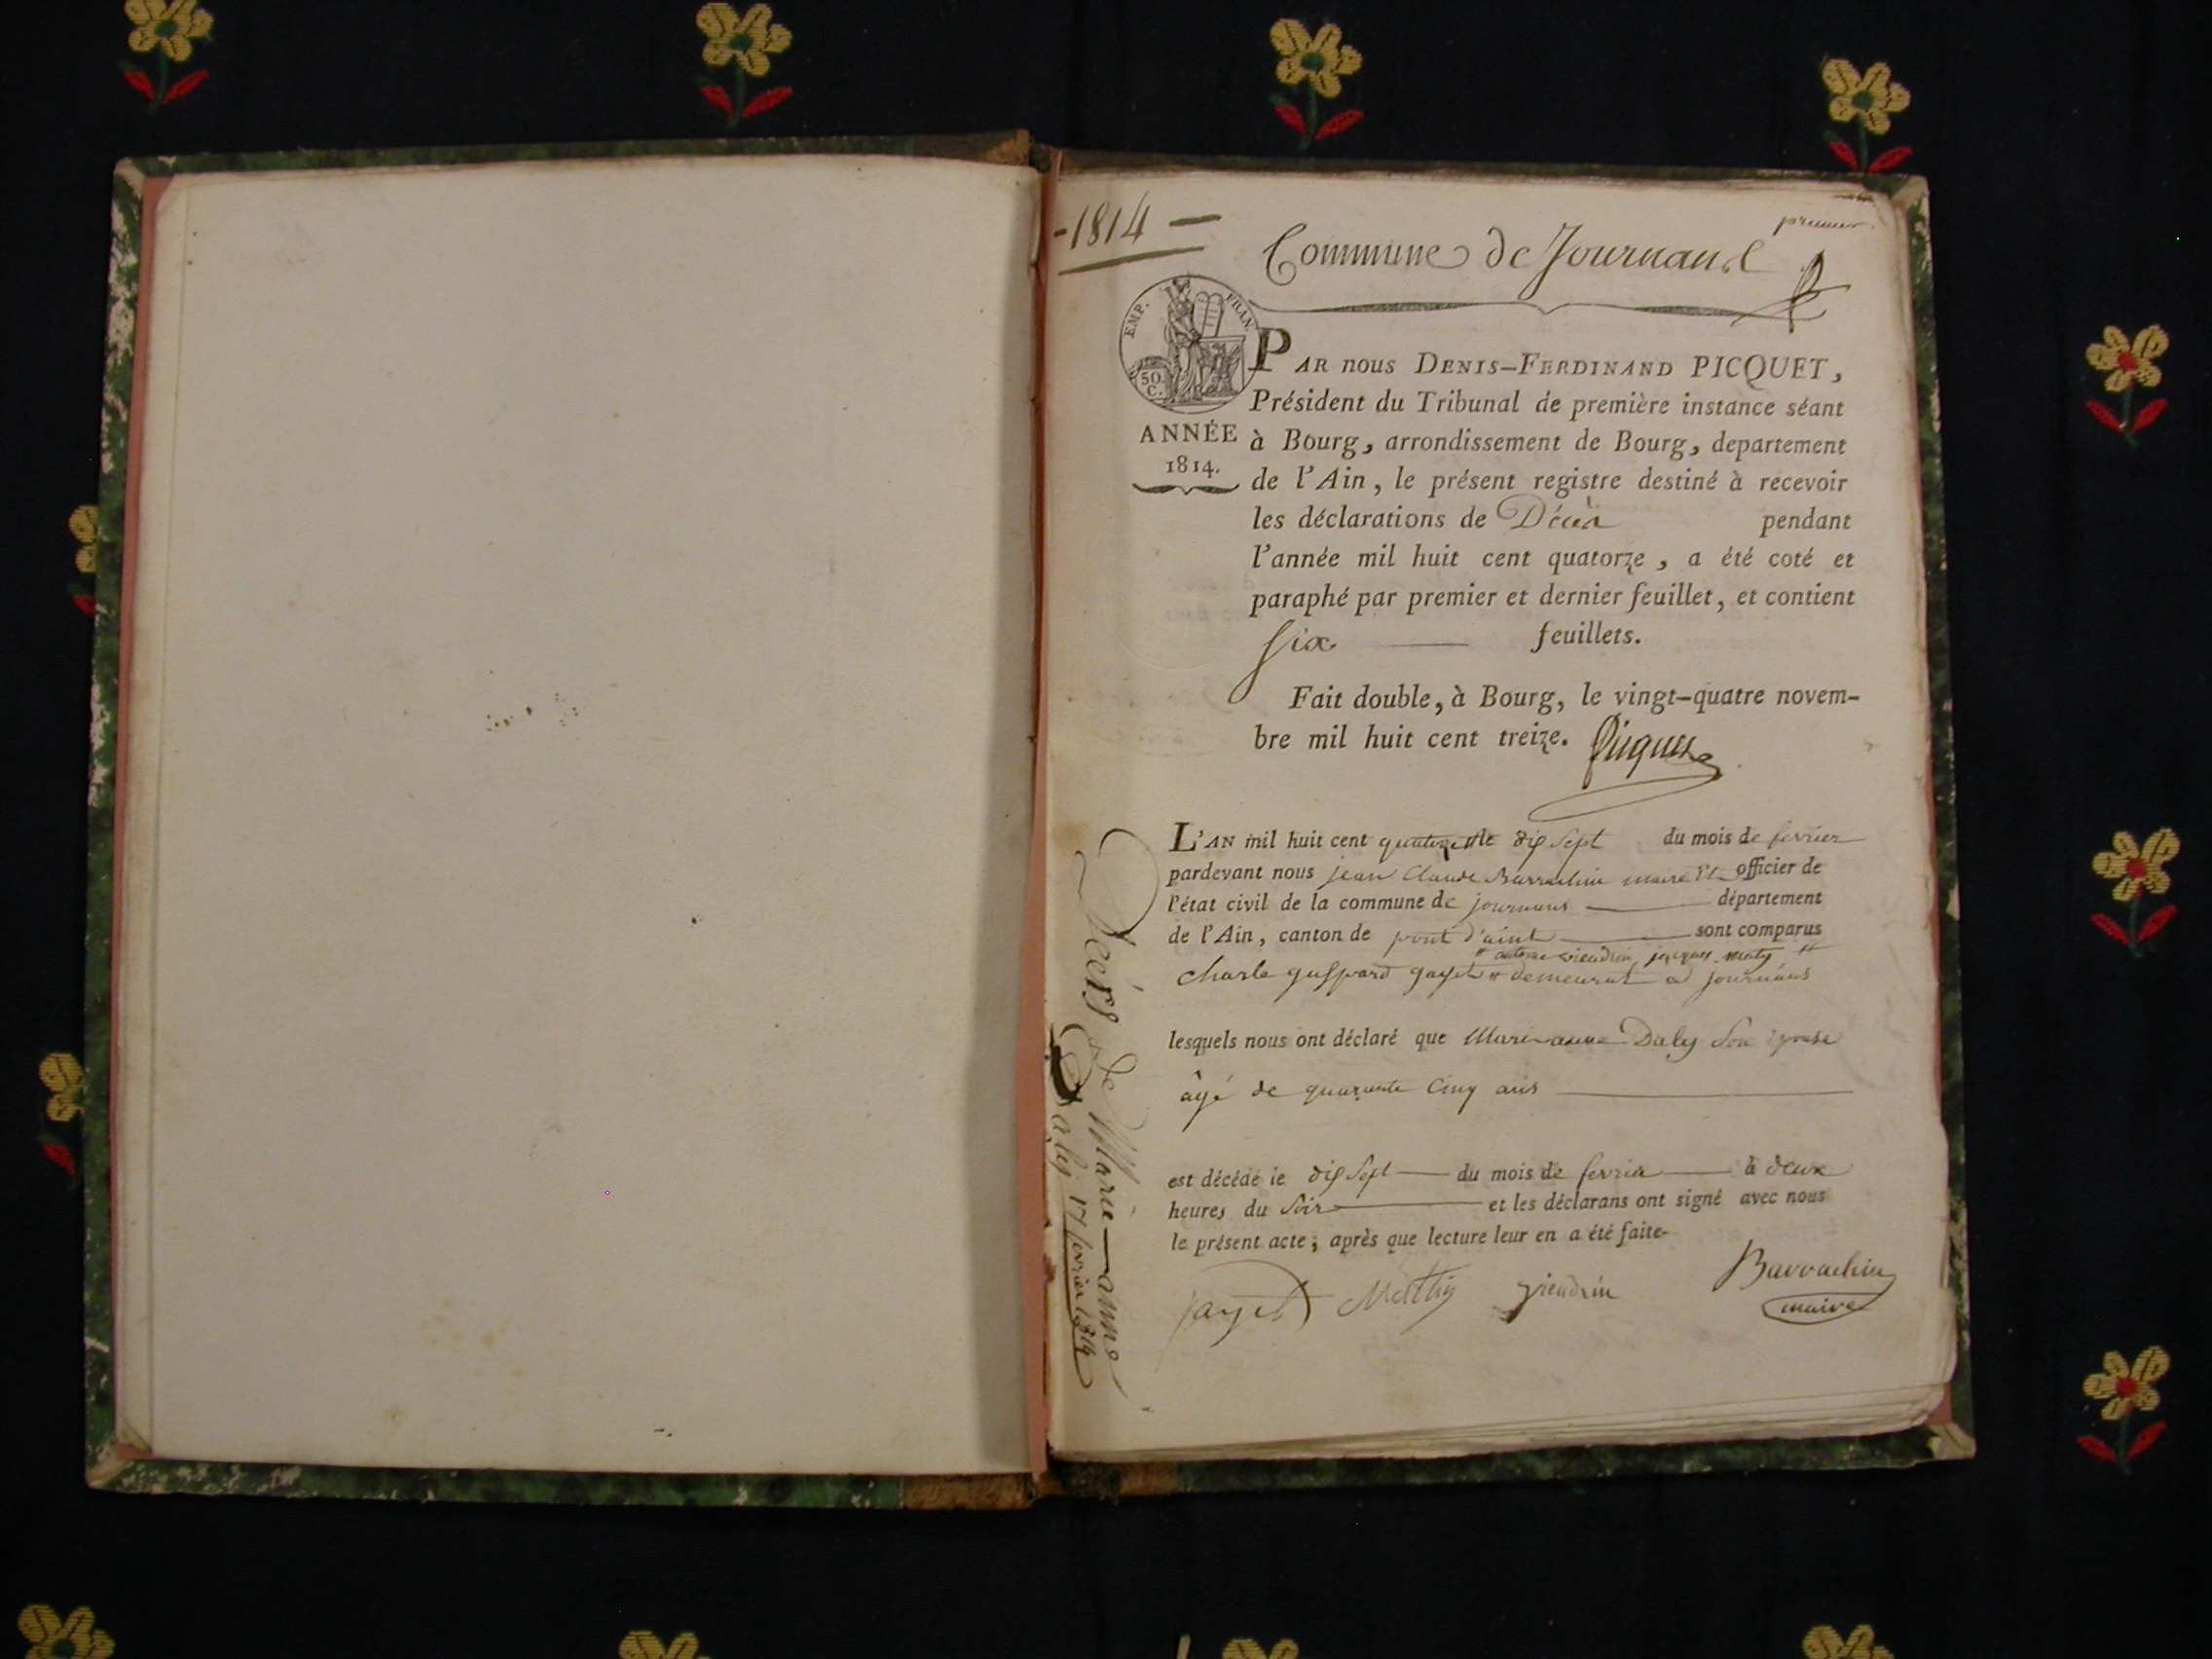 -1814-
premier
Commune de Journand
EMP. FRAN.
50 C.
PAR nous DENIS-FERDINAND PICQUET,
Président du Tribunal de première instance séant
ANNÉE
1814.
à Bourg, arrondissement de Bourg, departement
de l'Ain, le présent registre destiné à recevoir
les déclarations de Décès pendant
l'année mil huit cent quatorze, a été coté et
paraphé par premier et dernier feuillet, et contient
six feuillets.
Fait double, à Bourg, le vingt-quatre novem-
bre mil huit cent treize. Picquet
L'AN mil huit cent quatorze le dix sept du mois de fevrier
pardevant nous jean Claude Barrachin maire Et officier de
l'état civil de la commune de journans département
de l'Ain, canton de pont d'aint sont comparus
# antoine viendrin, jacques #
Charle gaspard gayet # demeurat a journans
lesquels nous ont déclaré que Marianne Daley Son epouse
âgé de quarante Cinq ans
est décédé le dix Sept du mois de fevrier à deux
heures du Soir et les déclarans ont signé avec nous
le présent acte, après que lecture leur en a été faite.
gayet viendrin Barrachin
maire
Décès de Marie-anne
Daley 17 fevrier 1814